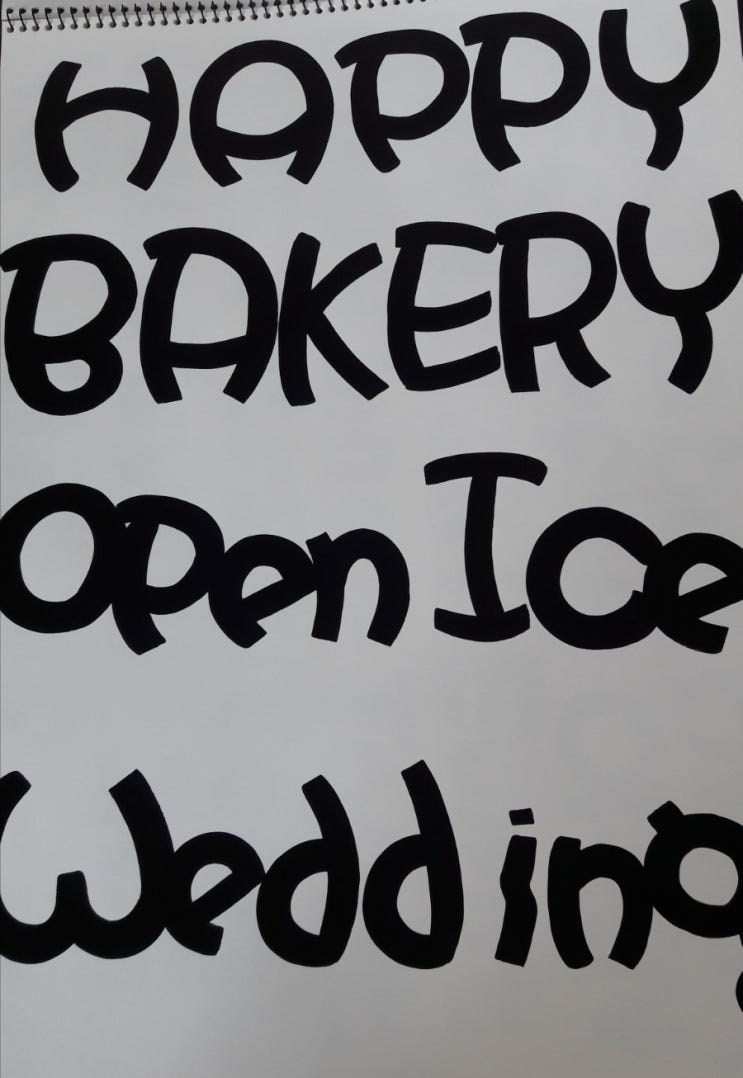 HAPPY
BAKERY
Open Ice
Wedding